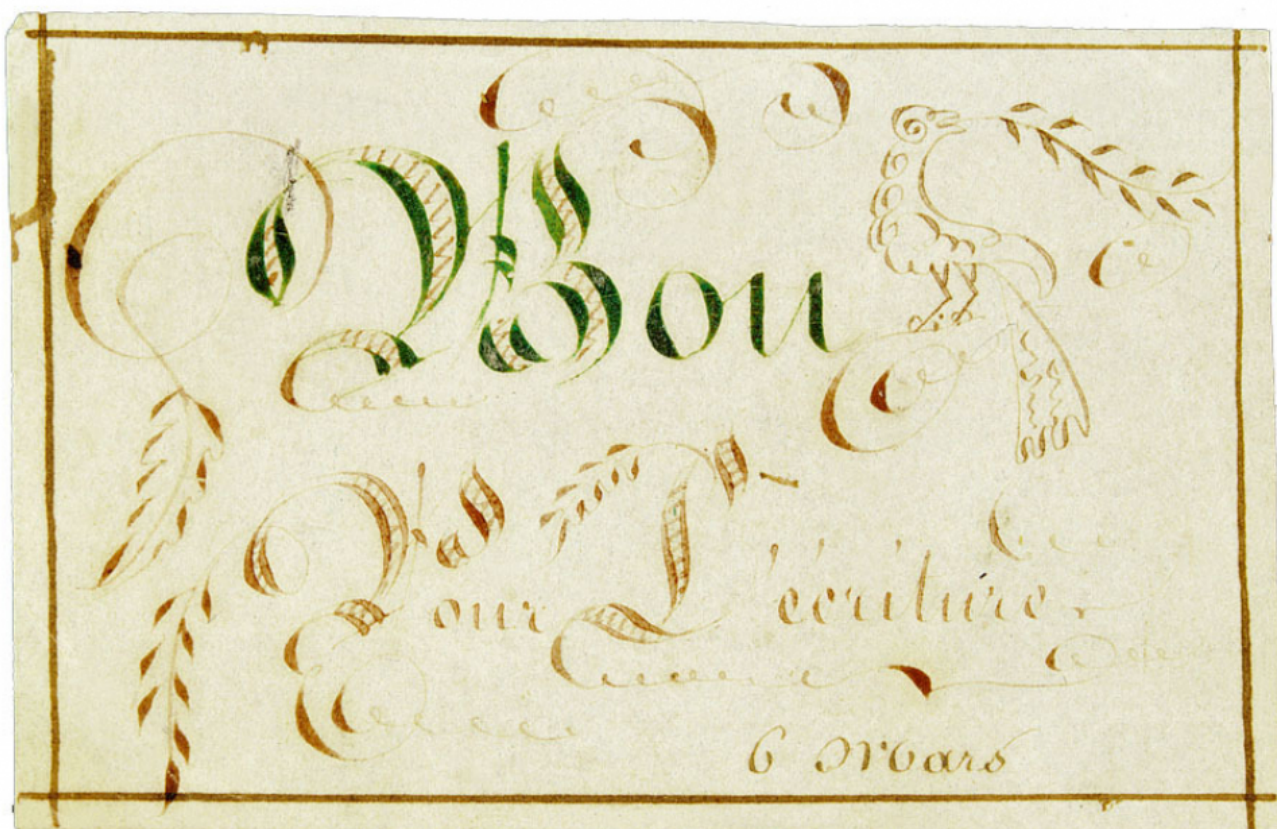 Bon
Pour L'écriture
6 Mars